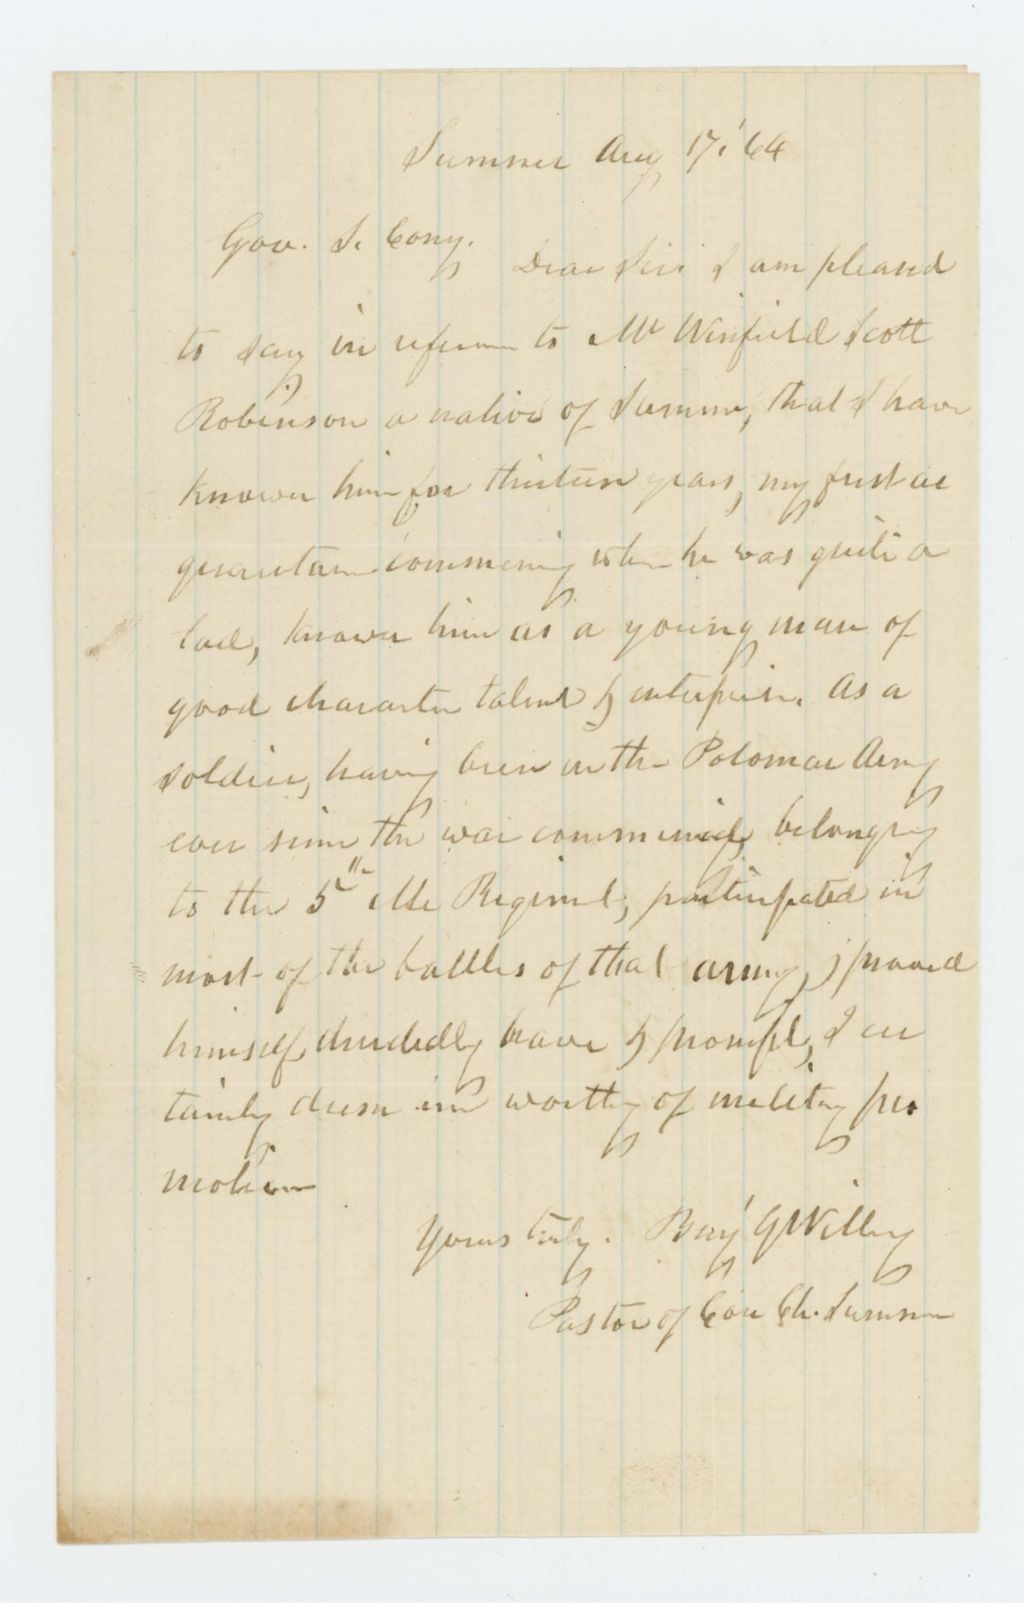 Sumner Aug 17, '64
Gov. S. Cony.
Dear Sir: I am pleased
to say in reference to Mr Winfield Scott
Robinson a native of Sumner, that I have
known him for thirteen years, my first ac
quaintance commencing when he was quite a
lad, known him as a young man of
good character talent & enterprise. As a
soldier, having been in the Potomac Army
ever since the war commenced, belonging
to the 5th Me Regiment, participated in
most of the battles of that army, & proved
himself decidedly brave & prompt, I cer
tainly deem him worthy of military pro
motion
Yours truly. Benj G Willey
Pastor of Con Ch. Sumner